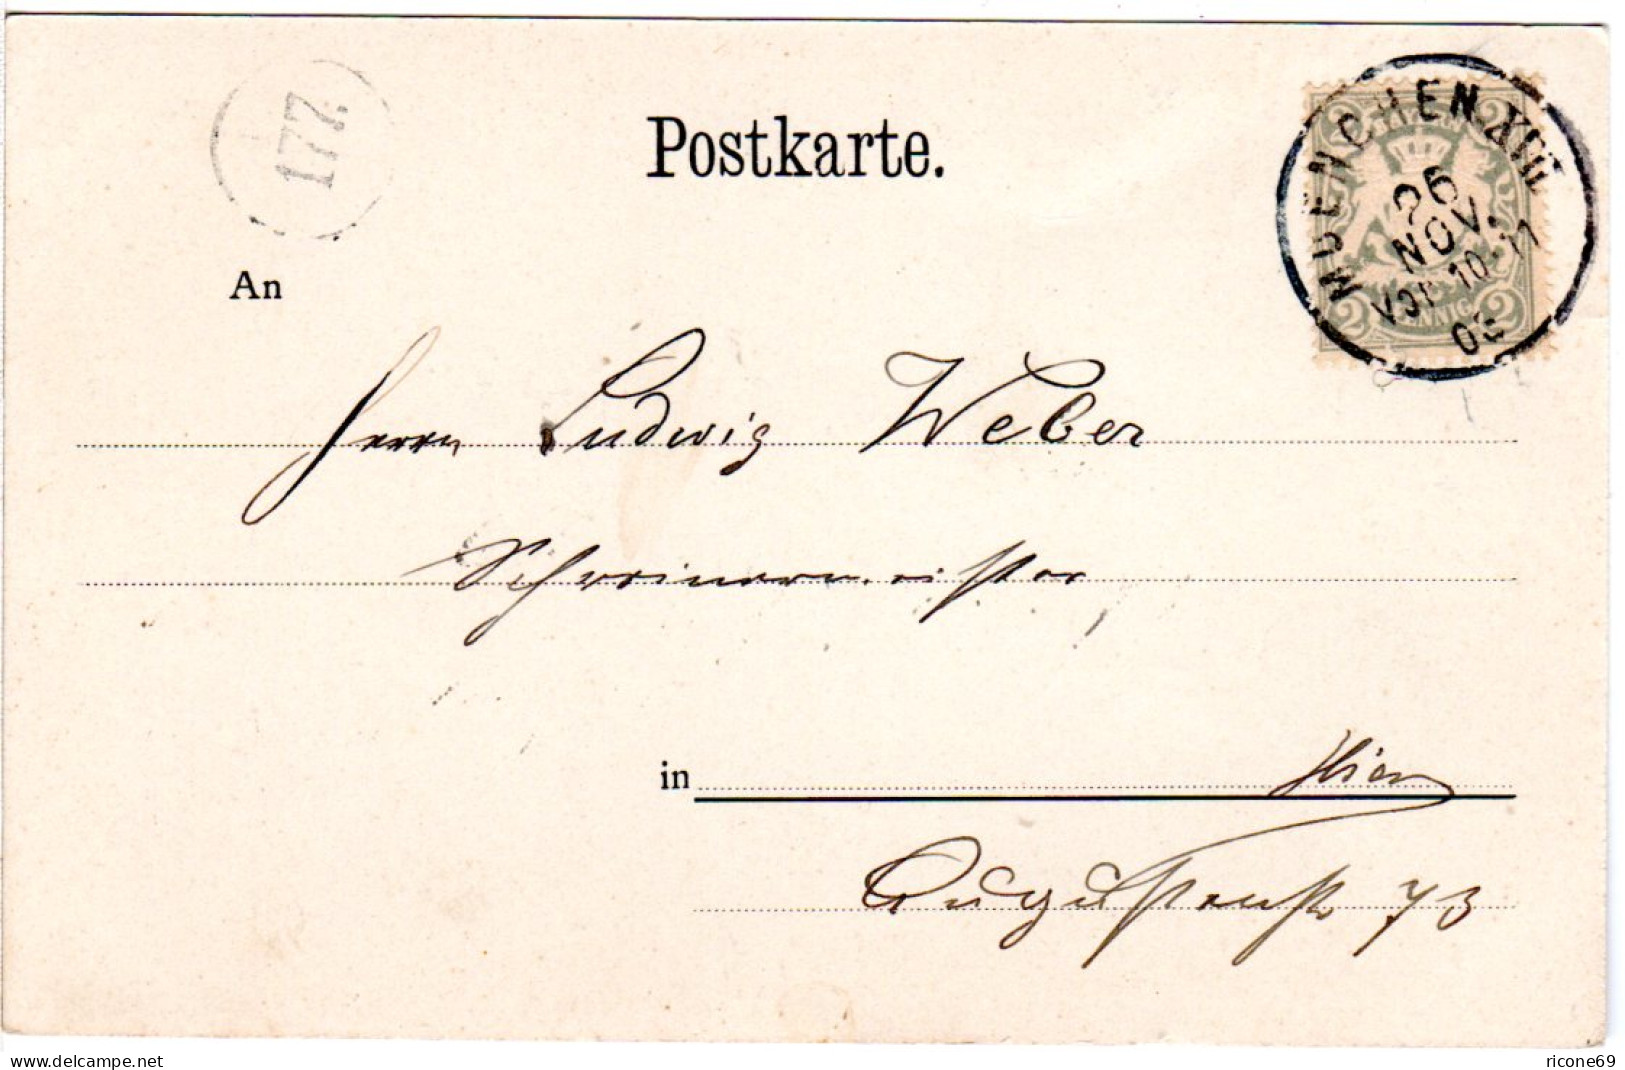 177.
Postkarte.
MUENCHEN.XIII
26
NOV.
Vor. 10-11
03
2 2
2 PFENNIG 2
An
Herrn Ludwig Weber
Schreinermeister
in Hier
Augustenstr 73
www.delcampe.net
ricone69